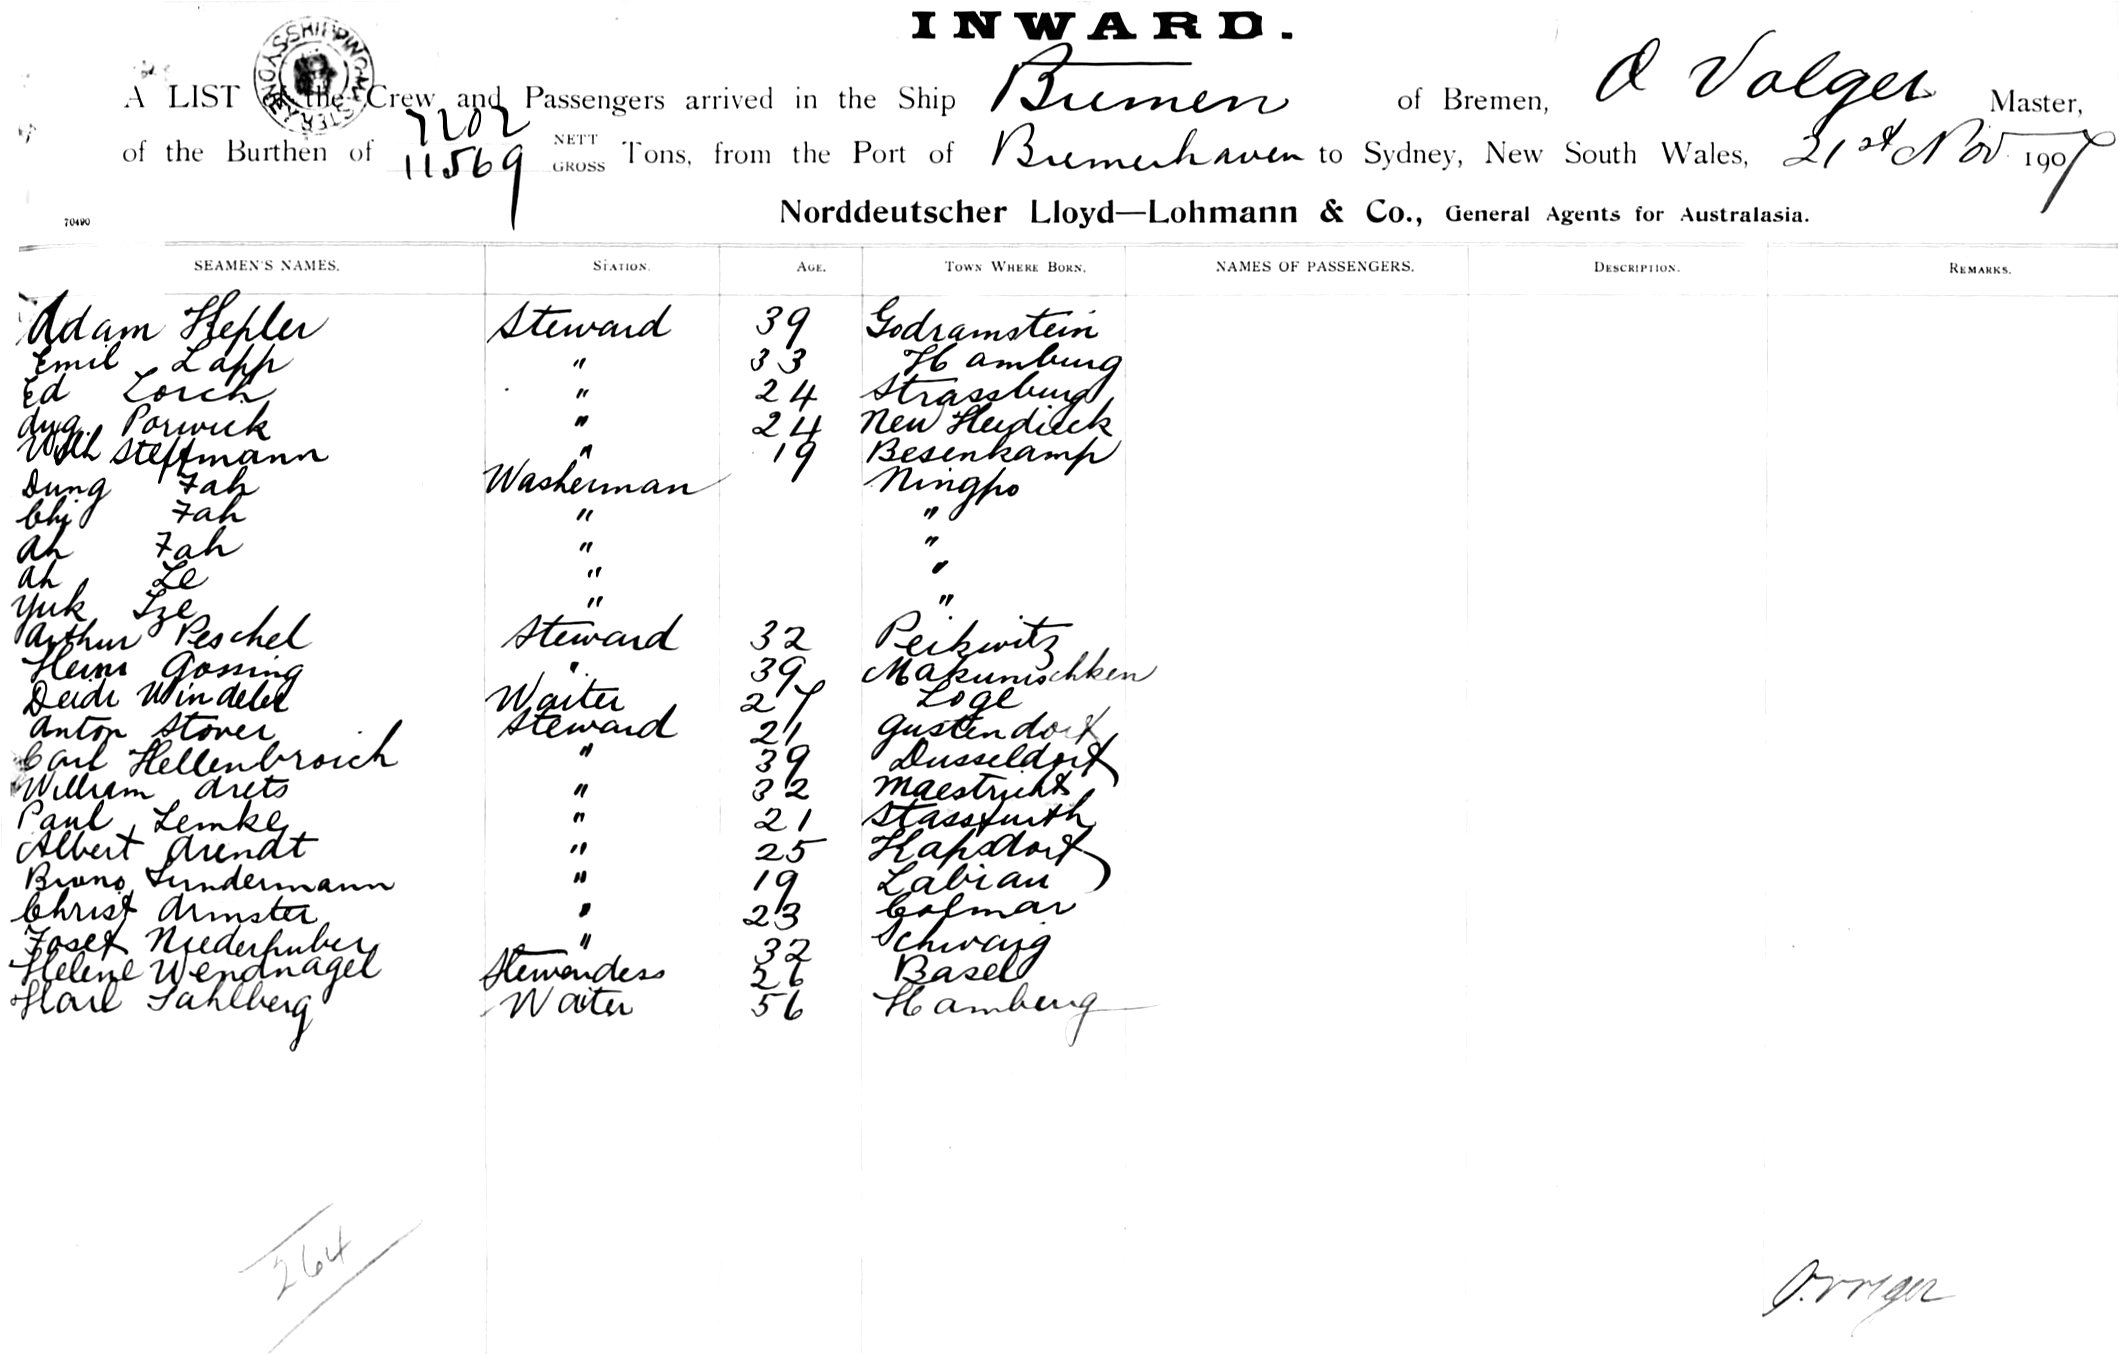 INWARD.
SYDNEY SHIPPING MASTER
A LIST of the Crew and Passengers arrived in the Ship Bremen of Bremen, O Volger Master,
of the Burthen of 7202 11569 NETT GROSS Tons, from the Port of Bremerhaven to Sydney, New South Wales, 21st Nov 1907
70490 Norddeutscher Lloyd—Lohmann & Co., General Agents for Australasia.
SEAMEN'S NAMES. STATION. AGE. TOWN WHERE BORN. NAMES OF PASSENGERS. DESCRIPTION. REMARKS.
Adam Hepler Steward 39 Godramstein
Emil Lapp " 33 Hamburg
Ed Lorch " 24 Strassburg
Aug. Porwick " 24 Neu
Wilh Steffmann " 19 Besenkamp
Dung Fah Washerman Ningpo
Chi Fah " "
Ah Fah " "
Ah Le " "
Yuk Sze " "
Arthur Peschel Steward 32 Peikwitz
Heinr Gossing " 39 Makunischken
Diedr Windeler Waiter 27 Loge
Anton Stover Steward 21 Gustendorf
Carl Hellenbroich " 39 Dusseldorf
William Arets " 32 Maestricht
Paul Lemke " 21 Stassfurth
Albert Arendt " 25 Kapsdorf
Bruno Sundermann " 19 Labiau
Christ Armster " 23 Colmar
Josef Niederhuber " 32 Schwaig
Helene Wendnagel Stewardess 26 Basel
Karl Sahlberg Waiter 56 Hamburg
264
O. Volger